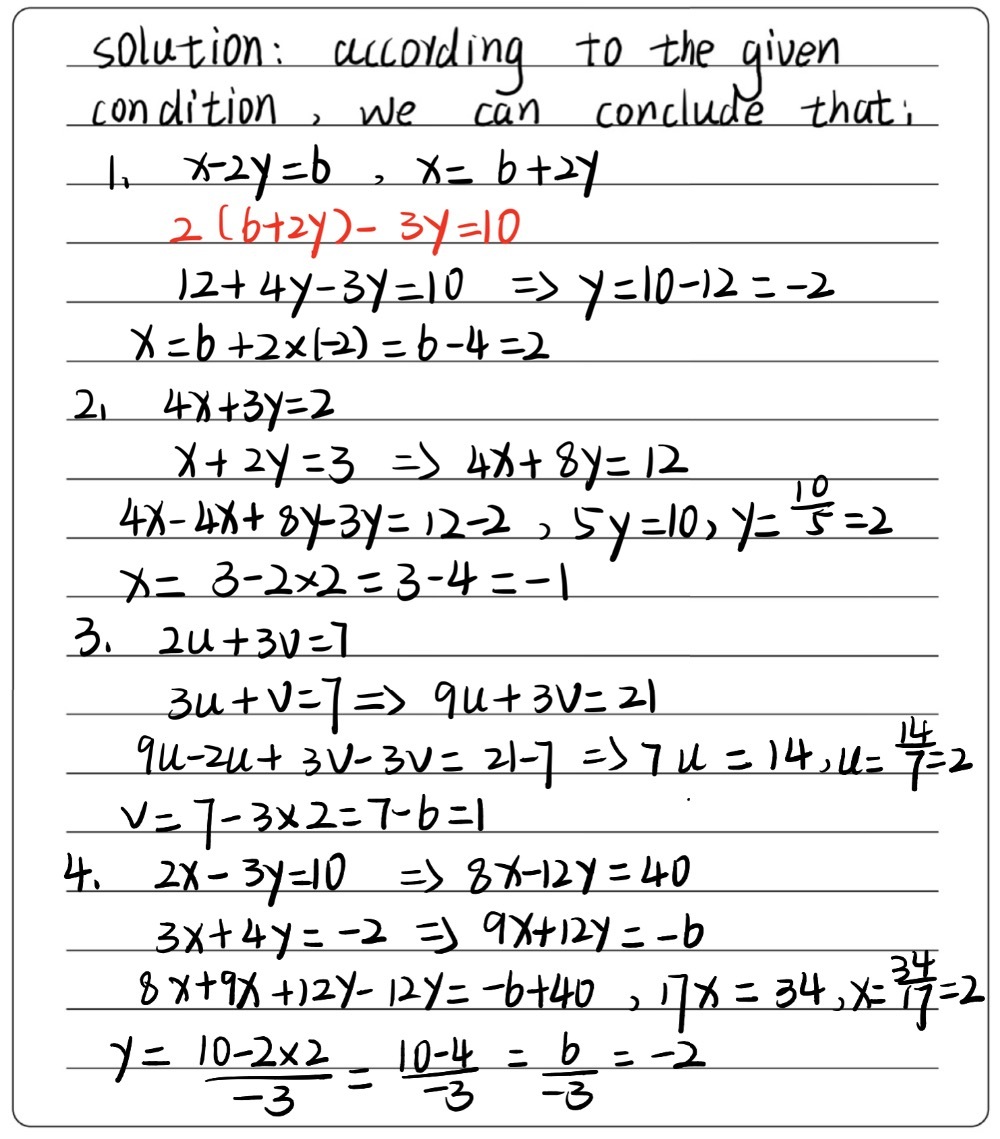 solution: according to the given
condition, we can conclude that:
1. x-2y=6, x=6+2y
2(6+2y)-3y=10
12+4y-3y=10 => y=10-12=-2
x=6+2×(-2)=6-4=2
2. 4x+3y=2
x+2y=3 => 4x+8y=12
4x-4x+8y-3y=12-2, 5y=10, y=10/5=2
x=3-2×2=3-4=-1
3. 2u+3v=7
3u+v=7 => 9u+3v=21
9u-2u+3v-3v=21-7 => 7u=14, u=14/7=2
v=7-3×2=7-6=1
4. 2x-3y=10 => 8x-12y=40
3x+4y=-2 => 9x+12y=-6
8x+9x+12y-12y=-6+40, 17x=34, x=34/17=2
y=(10-2×2)/-3=(10-4)/-3=6/-3=-2